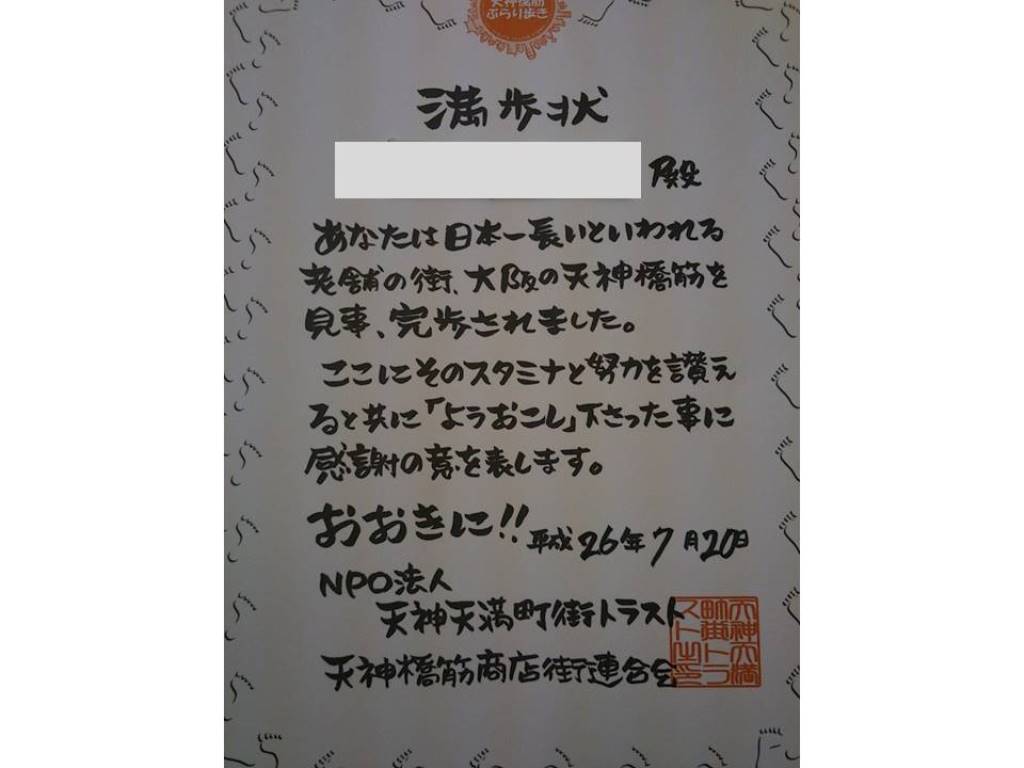 天神橋筋
ぶらり歩き
満歩状
殿
あなたは日本一長いといわれる
老舗の街、大阪の天神橋筋を
見事、完歩されました。
ここにそのスタミナと努力を讃え
ると共に「ようおこし」下さった事に
感謝の意を表します。
おおきに!!
平成26年7月20日
NPO法人
天神天満町街トラスト
天神橋筋商店街連合会
天神天満
町街トラ
スト之印